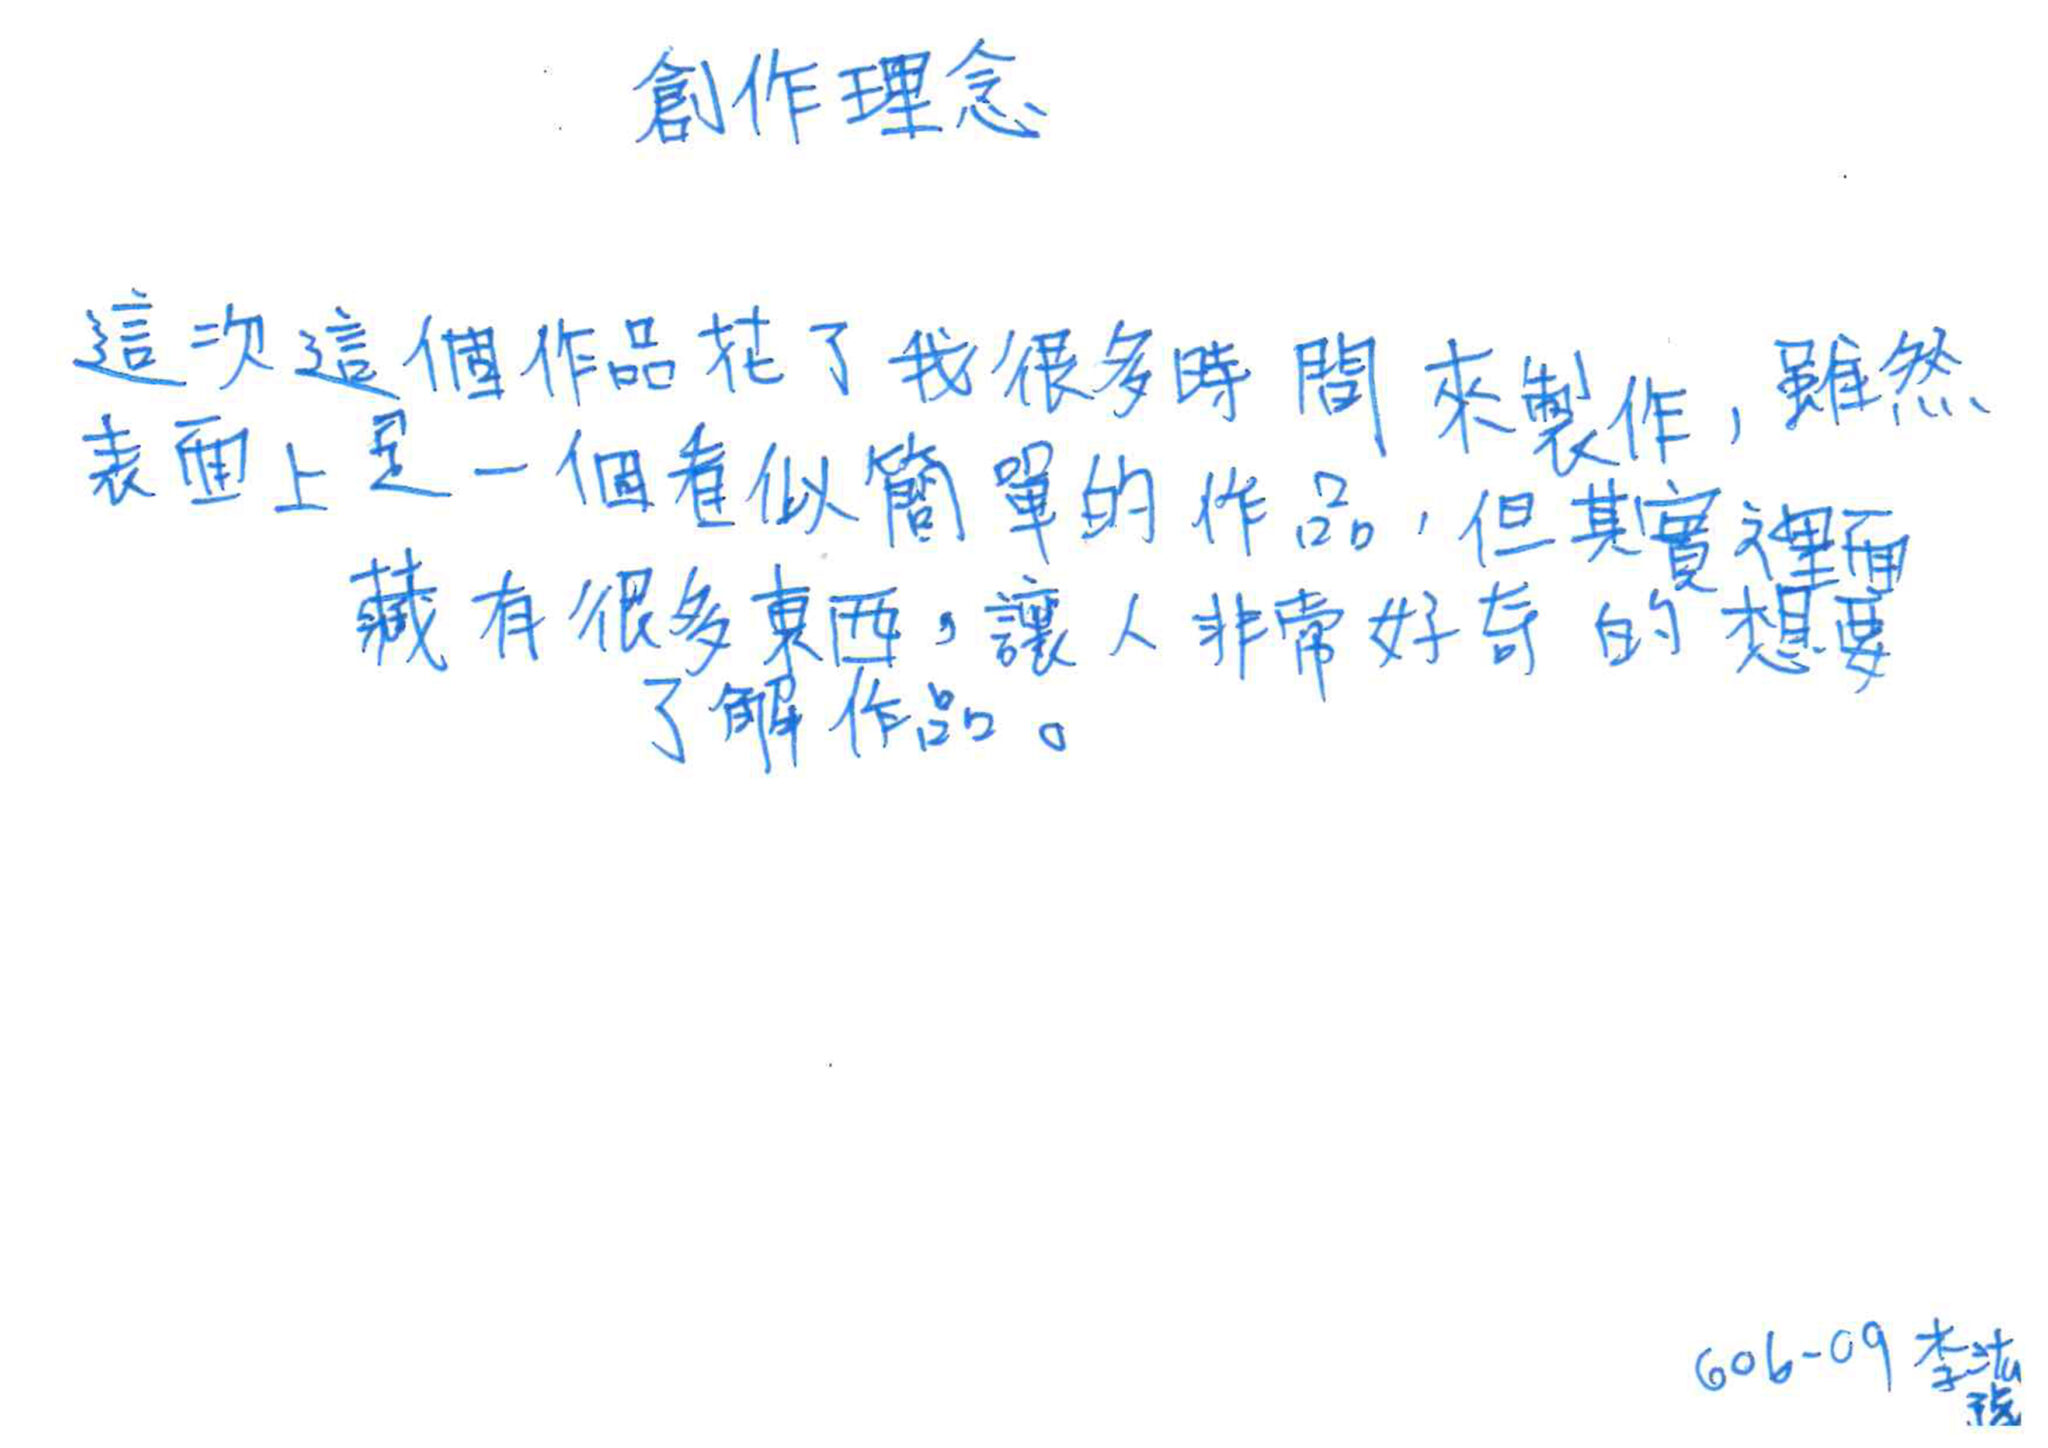 創作理念
這次這個作品花了我很多時間來製作，雖然
表面上是一個看似簡單的作品，但其實裡面
藏有很多東西，讓人非常好奇的想要
了解作品。
606-09 李